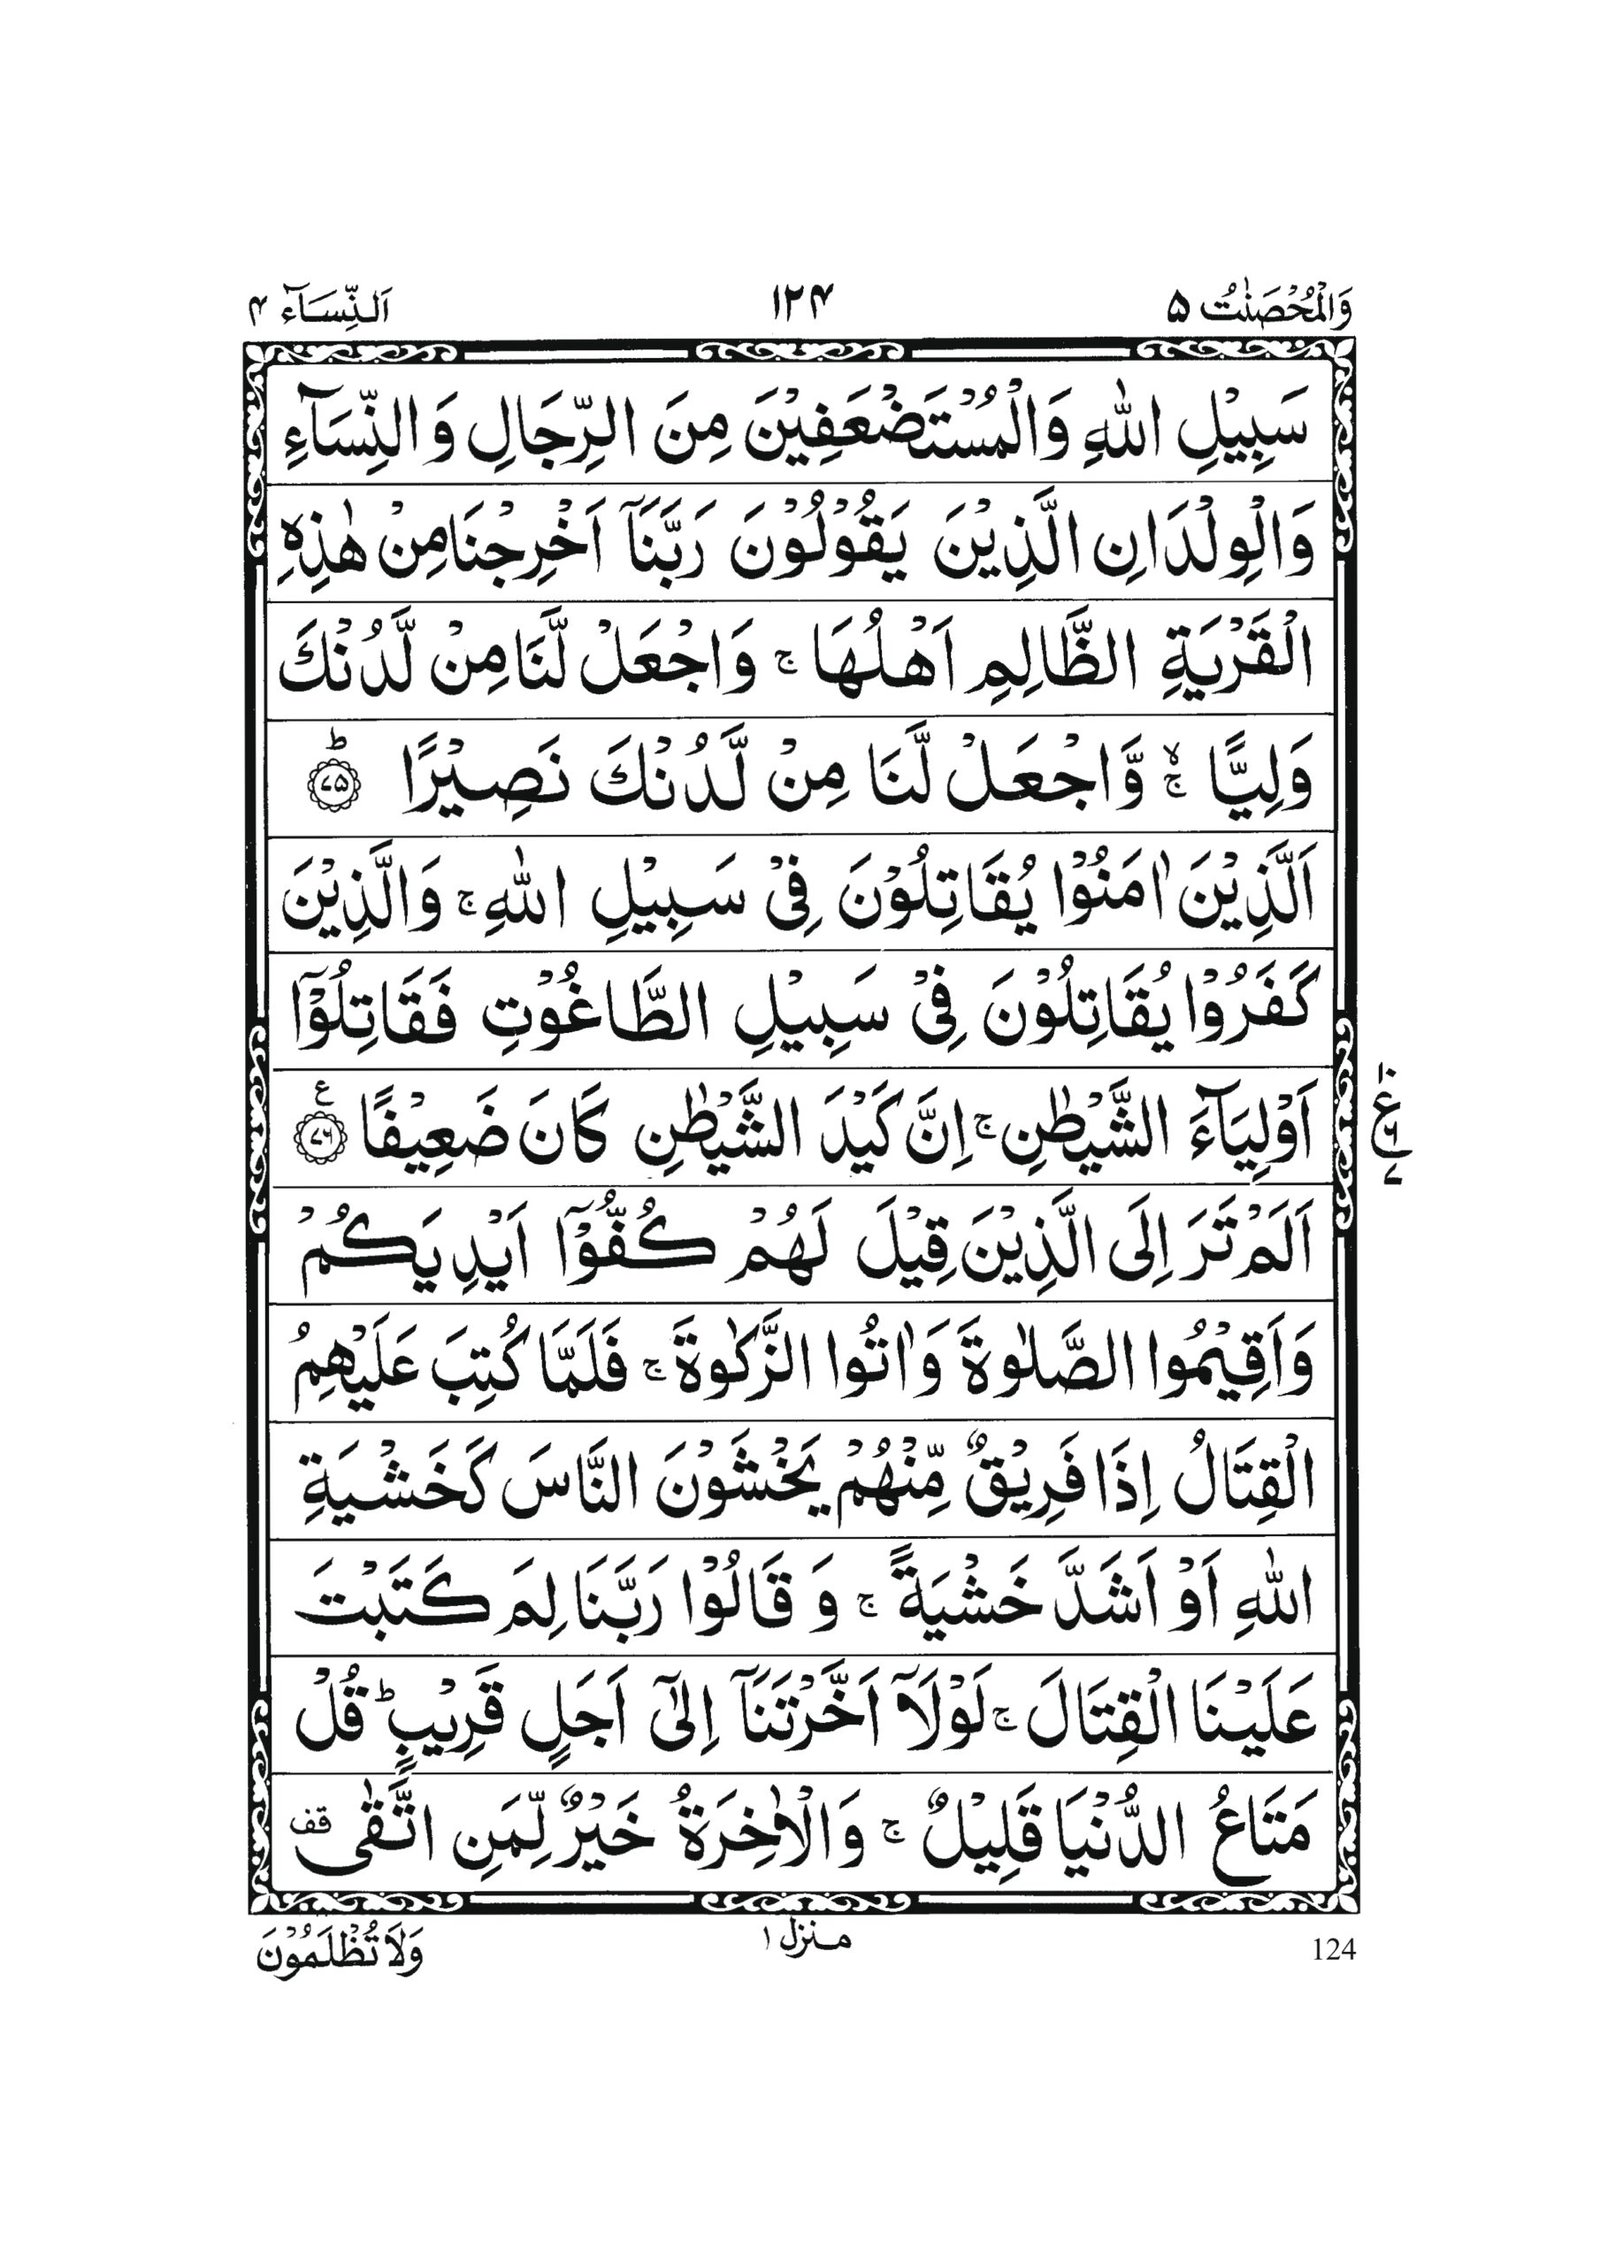 وَالْمُحْصَنٰتُ ۵ ۱۲۴ اَلنِّسَآء ۴
سَبِيْلِ اللّٰهِ وَالْمُسْتَضْعَفِيْنَ مِنَ الرِّجَالِ وَ النِّسَآءِ
وَالْوِلْدَانِ الَّذِيْنَ يَقُوْلُوْنَ رَبَّنَاۤ اَخْرِجْنَا مِنْ هٰذِهِ
الْقَرْيَةِ الظَّالِمِ اَهْلُهَا ۚ وَاجْعَلْ لَّنَا مِنْ لَّدُنْكَ
وَلِيًّا ۙۚ وَّاجْعَلْ لَّنَا مِنْ لَّدُنْكَ نَصِيْرًا ؕ ﴿۷۵﴾
اَلَّذِيْنَ اٰمَنُوْا يُقَاتِلُوْنَ فِيْ سَبِيْلِ اللّٰهِ ۚ وَالَّذِيْنَ
كَفَرُوْا يُقَاتِلُوْنَ فِيْ سَبِيْلِ الطَّاغُوْتِ فَقَاتِلُوْۤا
اَوْلِيَآءَ الشَّيْطٰنِ ۚ اِنَّ كَيْدَ الشَّيْطٰنِ كَانَ ضَعِيْفًا ﴿۷۶﴾ ع
۱۰ ع ۶ ۷
اَلَمْ تَرَ اِلَى الَّذِيْنَ قِيْلَ لَهُمْ كُفُّوْۤا اَيْدِيَكُمْ
وَاَقِيْمُوا الصَّلٰوةَ وَ اٰتُوا الزَّكٰوةَ ۚ فَلَمَّا كُتِبَ عَلَيْهِمُ
الْقِتَالُ اِذَا فَرِيْقٌ مِّنْهُمْ يَخْشَوْنَ النَّاسَ كَخَشْيَةِ
اللّٰهِ اَوْ اَشَدَّ خَشْيَةً ۚ وَ قَالُوْا رَبَّنَا لِمَ كَتَبْتَ
عَلَيْنَا الْقِتَالَ ۚ لَوْلَاۤ اَخَّرْتَنَاۤ اِلٰۤى اَجَلٍ قَرِيْبٍ ؕ قُلْ
مَتَاعُ الدُّنْيَا قَلِيْلٌ ۚ وَالْاٰخِرَةُ خَيْرٌ لِّمَنِ اتَّقٰى قف
124 منزل ۱ وَلَا تُظْلَمُوْنَ